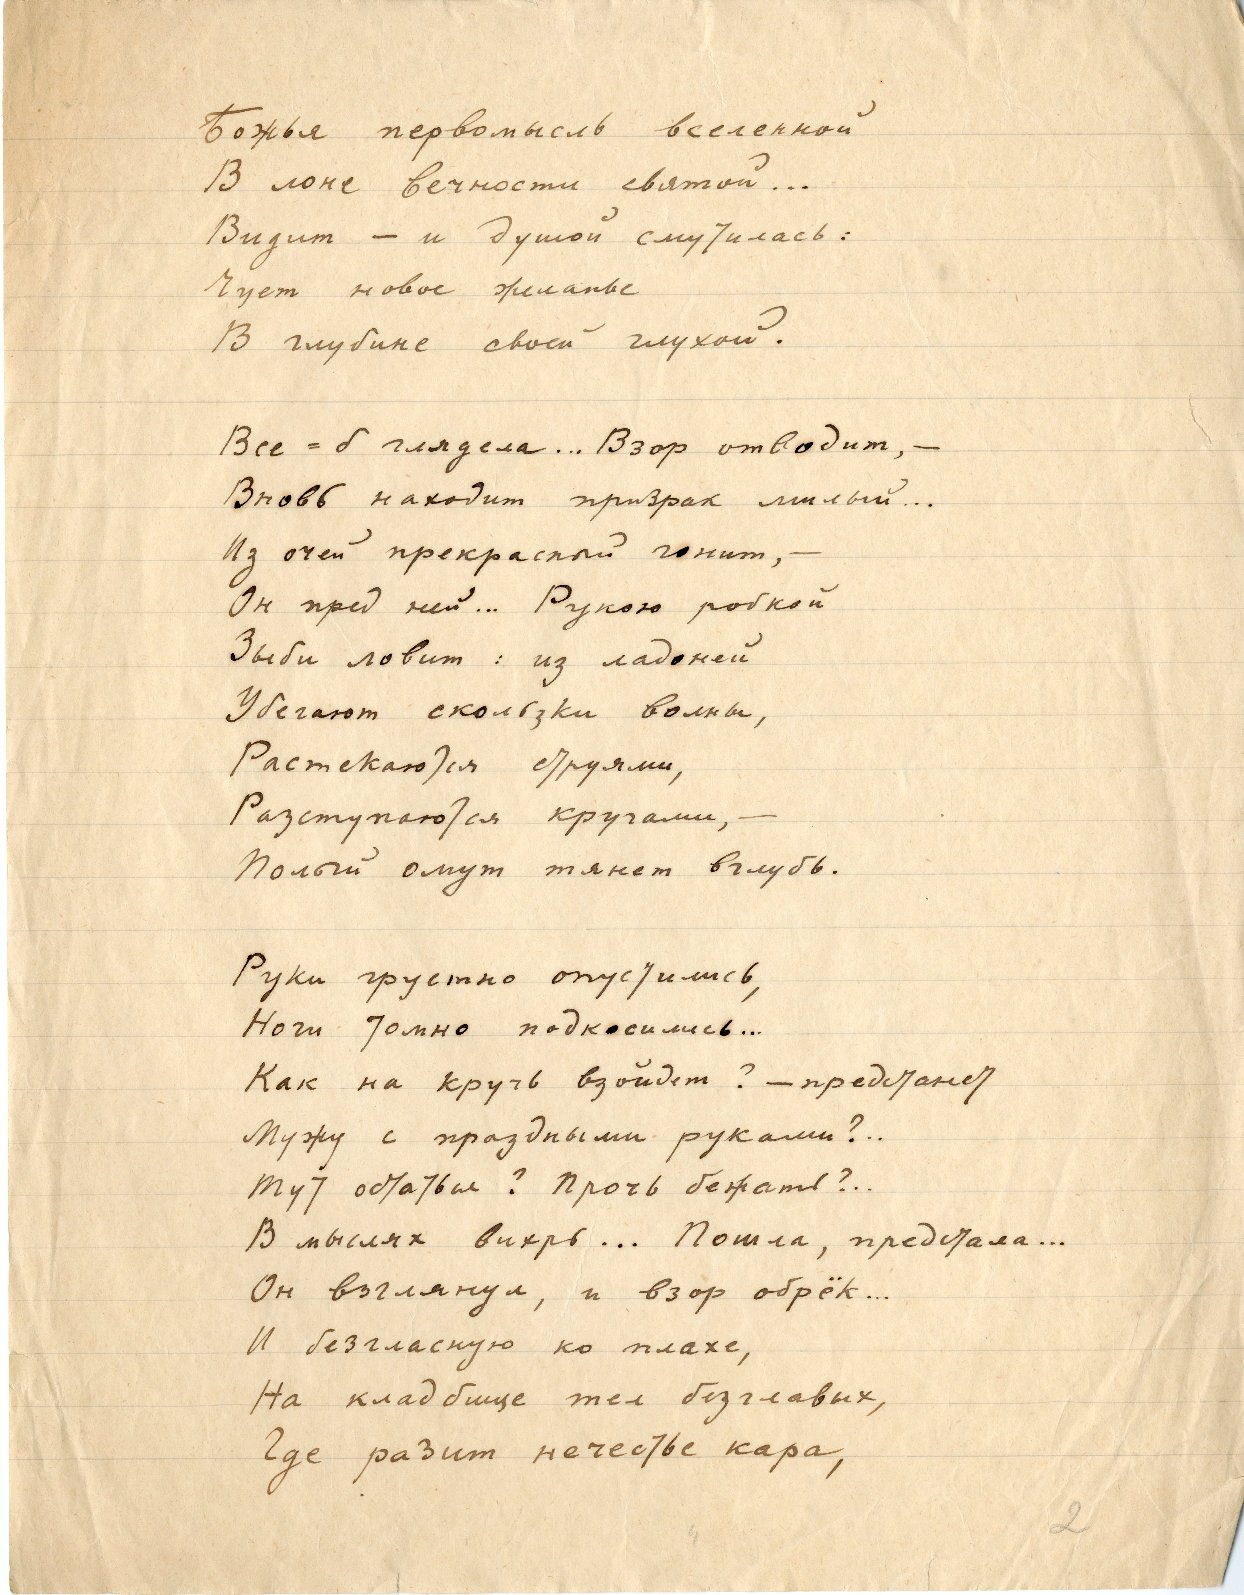 Божья первомысль вселенной
В лоне вечности святой...
Видит — и душой смутилась:
Чует новое желанье
В глубине своей глухой.
Все=б глядела... Взор отводит,—
Вновь находит призрак милый...
Из очей прекрасный гонит,—
Он пред ней... Рукою робкой
Зыби ловит: из ладоней
Убегают скользки волны,
Растекаются струями,
Разступаются кругами,—
Полый омут тянет вглубь.
Руки грустно опустились,
Ноги томно подкосились...
Как на кручь взойдет? — предстанет
Мужу с праздными руками?..
Тут остаться? Прочь бежать?..
В мыслях вихрь... Пошла, предстала...
Он взглянул, и взор обрёк...
И безгласную ко плахе,
На кладбище тел безглавых,
Где разит нечестье кара,
2